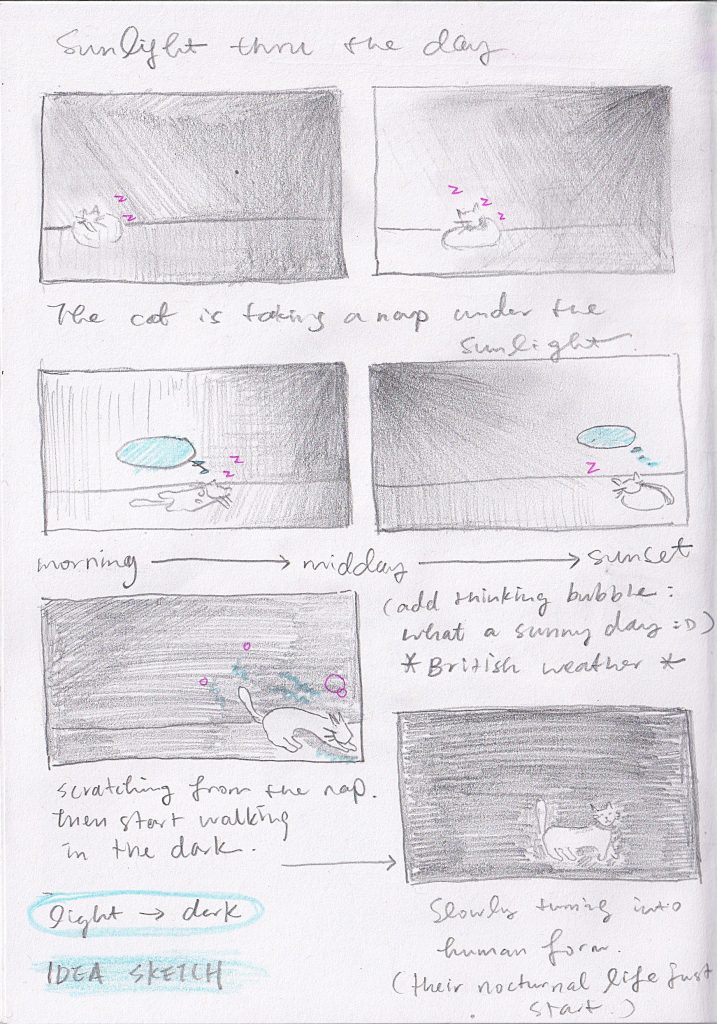 Sunlight thru the day
z
z
z
z
z
The cat is taking a nap under the
sunlight.
z
z
z
morning → midday → sunset
(add thinking bubble:
what a sunny day =D)
*British weather*
scratching from the nap.
then start walking
in the dark.
light → dark
IDEA SKETCH
Slowly turning into
human form.
(their nocturnal life just
start.)